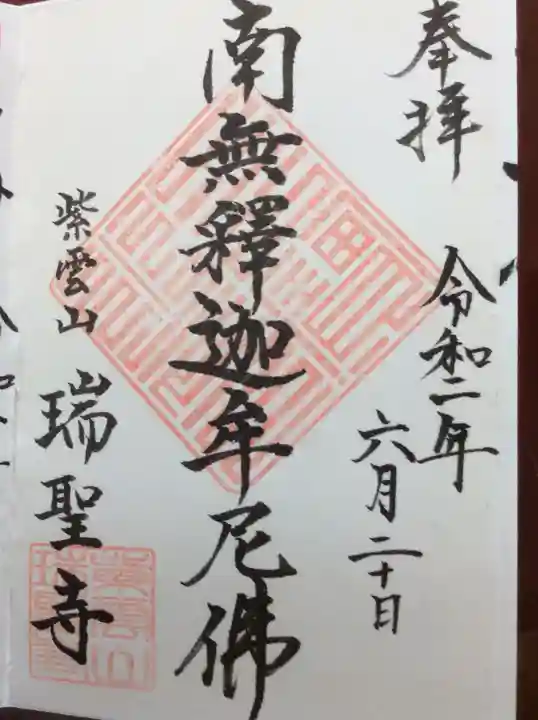 奉拝
令和二年
六月二十日
南無釋迦牟尼佛
紫雲山
瑞聖寺